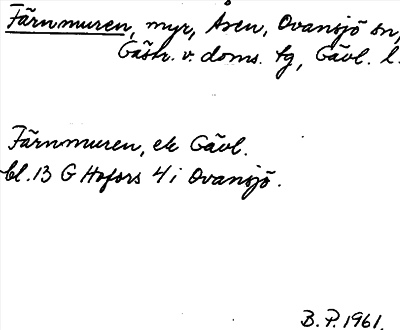 Färnmuren, myr, Åsen, Ovansjö sn,
Gästr. v. doms. tg, Gävl. l.
Färnmuren, ek Gävl.
bl. 13 G Hofors 4 i Ovansjö.
B. P. 1961.